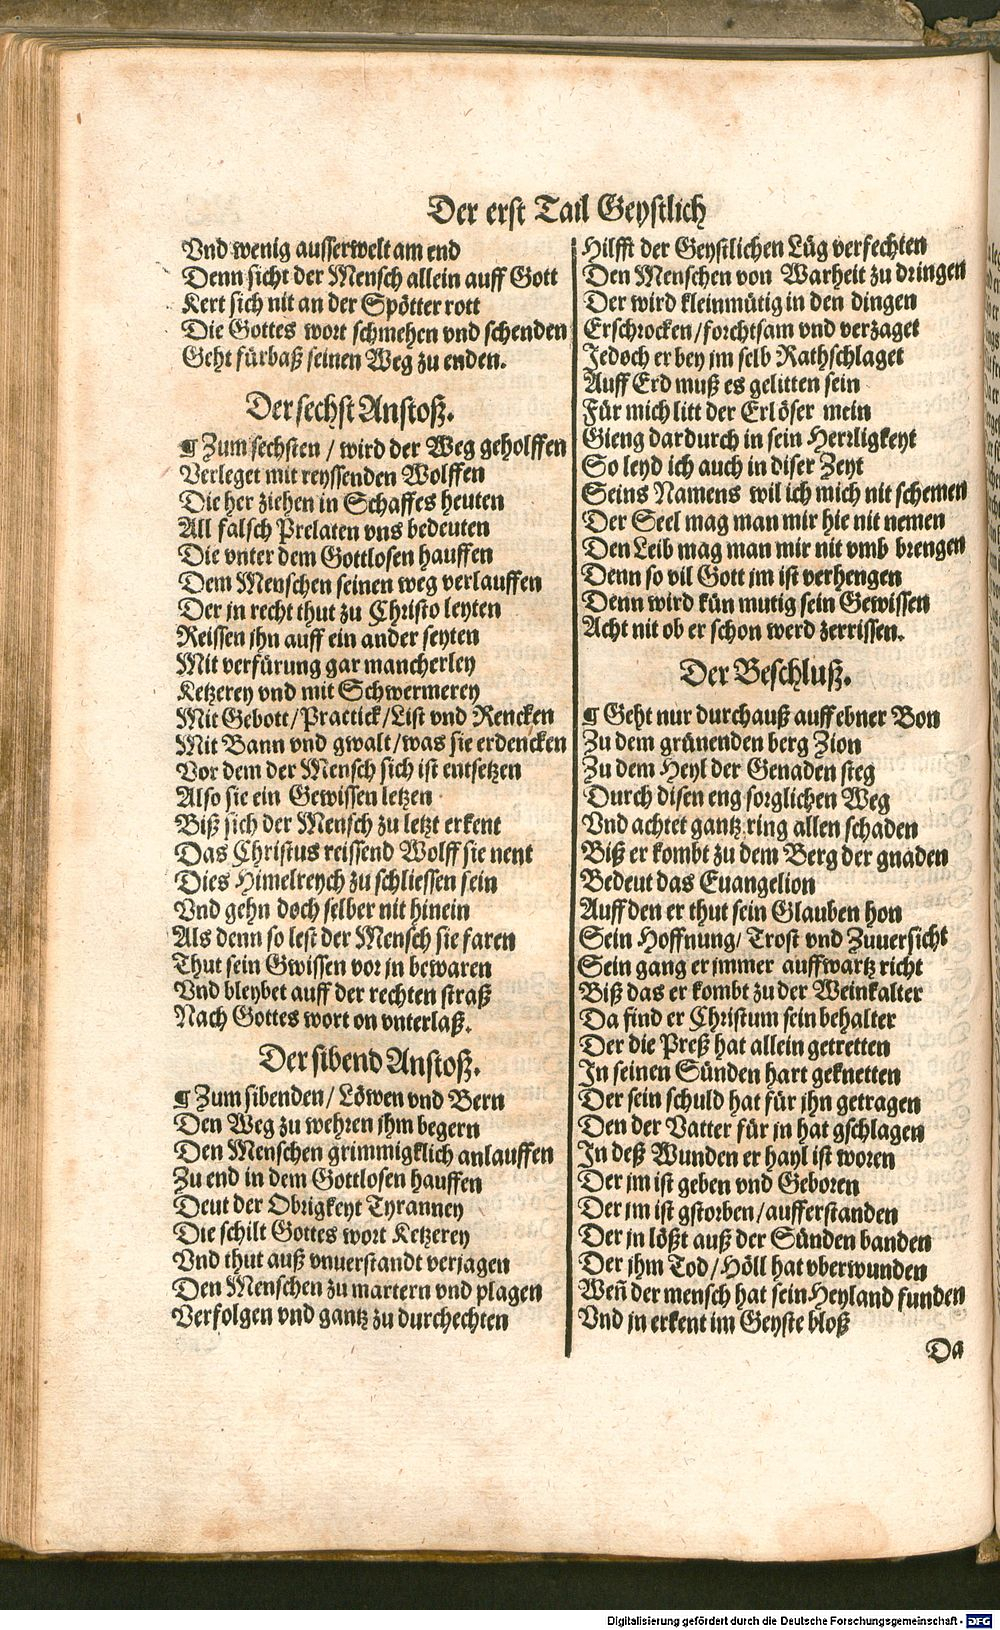 Der erst Tail Geystlich
Vnd wenig ausserwelt am end
Denn sicht der Mensch allein auff Gott
Kert sich nit an der Spötter rott
Die Gottes wort schmehen vnd schenden
Geht fürbaß seinen Weg zu enden.
Der sechst Anstoß.
¶ Zum sechsten / wird der Weg geholffen
Verleget mit reyssenden Wolffen
Die her ziehen in Schaffes heuten
All falsch Prelaten vns bedeuten
Die vnter dem Gottlosen hauffen
Dem Menschen seinen weg verlauffen
Der jn recht thut zu Christo leyten
Reissen jhn auff ein ander seyten
Mit verfürung gar mancherley
Ketzerey vnd mit Schwermerey
Mit Gebott/Practick/List vnd Rencken
Mit Bann vnd gwalt/was sie erdencken
Vor dem der Mensch sich ist entsetzen
Also sie ein Gewissen letzen
Biß sich der Mensch zu letzt erkent
Das Christus reissend Wolff sie nent
Dies Himelreych zu schliessen sein
Vnd gehn doch selber nit hinein
Als denn so lest der Mensch sie faren
Thut sein Gwissen vor jn bewaren
Vnd bleybet auff der rechten straß
Nach Gottes wort on vnterlaß.
Der sibend Anstoß.
¶ Zum sibenden/ Löwen vnd Bern
Den Weg zu wehren jhm begern
Den Menschen grimmigklich anlauffen
Zu end in dem Gottlosen hauffen
Deut der Obrigkeyt Tyranney
Die schilt Gottes wort Ketzerey
Vnd thut auß vnuerstandt verjagen
Den Menschen zu martern vnd plagen
Verfolgen vnd gantz zu durchechten
Hilfft der Geystlichen Lüg verfechten
Den Menschen von Warheit zu dringen
Der wird kleinmütig in den dingen
Erschrocken/forchtsam vnd verzaget
Jedoch er bey jm selb Rathschlaget
Auff Erd muß es gelitten sein
Für mich litt der Erlöser mein
Gieng dardurch in sein Herrligkeyt
So leyd ich auch in diser Zeyt
Seins Namens wil ich mich nit schemen
Der Seel mag man mir hie nit nemen
Den Leib mag man mir nit vmb brengen
Denn so vil Gott jm ist verhengen
Denn wird kün mutig sein Gewissen
Acht nit ob er schon werd zerrissen.
Der Beschluß.
¶ Geht nur durchauß auff ebner Bon
Zu dem grünenden berg Zion
Zu dem Heyl der Genaden steg
Durch disen eng sorglichen Weg
Vnd achtet gantz ring allen schaden
Biß er kombt zu dem Berg der gnaden
Bedeut das Euangelion
Auff den er thut sein Glauben hon
Sein Hoffnung/ Trost vnd Zuuersicht
Sein gang er jmmer auffwartz richt
Biß das er kombt zu der Weinkalter
Da find er Christum sein behalter
Der die Preß hat allein getretten
In seinen Sünden hart geknetten
Der sein schuld hat für jhn getragen
Den der Vatter für jn hat gschlagen
In deß Wunden er hayl ist woren
Der jm ist geben vnd Geboren
Der jm ist gstorben/aufferstanden
Der jn lößt auß der Sünden banden
Der jhm Tod/Höll hat vberwunden
Weñ der mensch hat sein Heyland funden
Vnd jn erkent im Geyste bloß
Da
Digitalisierung gefördert durch die Deutsche Forschungsgemeinschaft - DFG